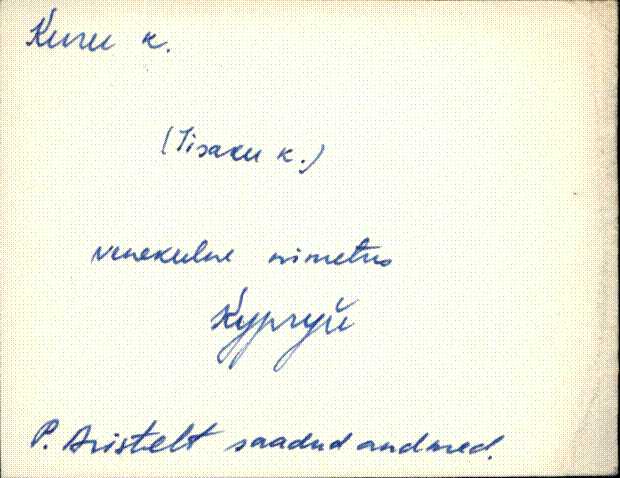 Kuru k.
(Iisaku k.)
venekeelne nimetus
P. Aristelt saadud andmed.